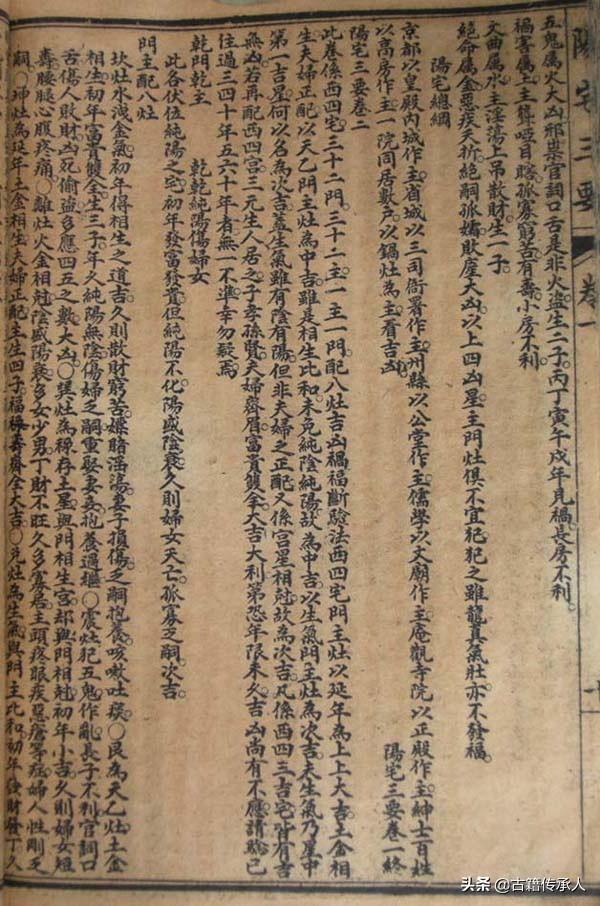 五鬼屬火大凶邪祟官詞口舌是非火盜生二子丙丁寅午戌年見禍長房不利
禍害屬土主聾啞目瞎孤寡窮苦有壽小房不利
文曲屬水主淫蕩上吊散財生一子
絕命屬金惡疾夭折絕嗣孤孀敗產大凶以上四凶星主門灶俱不宜犯犯之雖龍真氣壯亦不發福
陽宅總綱
京都以皇殿內城作主省城以三司衙署作主州縣以公堂作主儒學以文廟作主庵觀寺院以正殿作主紳士百姓
以高房作主一院同居數戶以鍋灶為主看吉凶
陽宅三要卷一終
陽宅三要卷二
此卷係西四宅三十二門三十二主一主一門配八灶吉凶禍福斷驗法西四宅門主灶以延年為上上大吉土金相
生夫婦正配以天乙門主灶為中吉雖是相生比和未免純陰純陽故為中吉以生氣門主灶為次吉夫生氣乃星中
第一吉星何以名為次吉蓋生氣雖有陰有陽但非夫婦之正配又係宮星相尅故為次吉凡係西四三吉宅皆有吉
無凶若再配西四宮三元生人居之子孝孫賢夫婦齊眉富貴雙全大吉大利第恐年限未久吉凶尚有不應請驗已
往過三四十年五六十年者無一不準幸勿疑焉
乾門乾主
乾乾純陽傷婦女
此各伏位純陽之宅初年發富發貴但純陽不化陽盛陰衰久則婦女夭亡孤寡乏嗣次吉
門主配八灶
坎灶水洩金氣初年得相生之道吉久則散財窮苦嫖賭淫蕩妻子損傷乏嗣抱養咳嗽吐痰〇艮為天乙灶土金
相生初年富貴雙全生三子年久純陽無陰傷婦乏嗣重娶妻妾抱養過繼〇震灶犯五鬼作亂長子不利官詞口
舌傷人敗財凶死偷盜多應四五之數大凶〇巽灶為祿存土星與門相生宮却與門相尅初年小吉久則婦女短
壽腰腿心腹疼痛〇離灶火金相尅陰盛陽衰多女少男丁財不旺久多寡居主頭疼眼疾惡瘡等症婦人性剛乏
嗣〇坤灶為延年土金相生夫婦正配主生四子福祿壽齊全大吉〇兌灶為生氣與門主比和初年發財發丁久
陽宅三要
卷一
十
头条 @古籍传承人